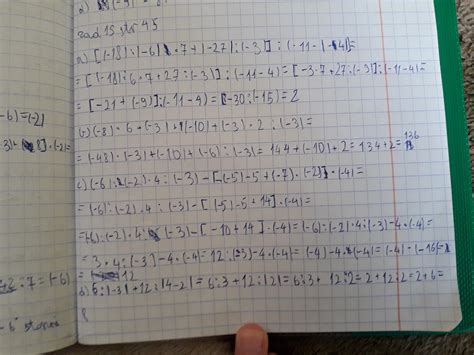 zad 15 str 45
a) [(-18) : |-6| · 7 + |-27| : (-3)] : (-11 - |-4|) =
= [(-18) : 6 · 7 + 27 : (-3)] : (-11-4) = [-3·7 + 27 : (-3)] : (-11-4) =
= [-21 + (-9)] : (-11-4) = (-30) : (-15) = 2
b) (-8) · 6 · (-3) + (-10) + (-3) · 2 : (-3) =
= (-48) · (-3) + (-10) + (-6) : (-3) = 144 + (-10) + 2 = 134 + 2 = 136
c) (-6) : (-2) · 4 : (-3) - [(-5)-5 + (-7) · (-2)] · (-4) =
= (-6) : (-2) · 4 : (-3) - [(-5)-5 + 14] · (-4) =
= (-6) : (-2) · 4 : (-3) - [-10 + 14] · (-4) = (-6) : (-2) · 4 : (-3) - 4 · (-4) =
= 3 · 4 : (-3) - 4 · (-4) = 12 : (-3) - 4 · (-4) = (-4) - 4 · (-4) = (-4) - (-16) =
= 12
d) 6 : |-3| + 12 : |4-2| = 6 : 3 + 12 : |2| = 6 : 3 + 12 : 2 = 2 + 12 : 2 = 2 + 6 =
8
-6) = (-2)
: 7 = (-6)